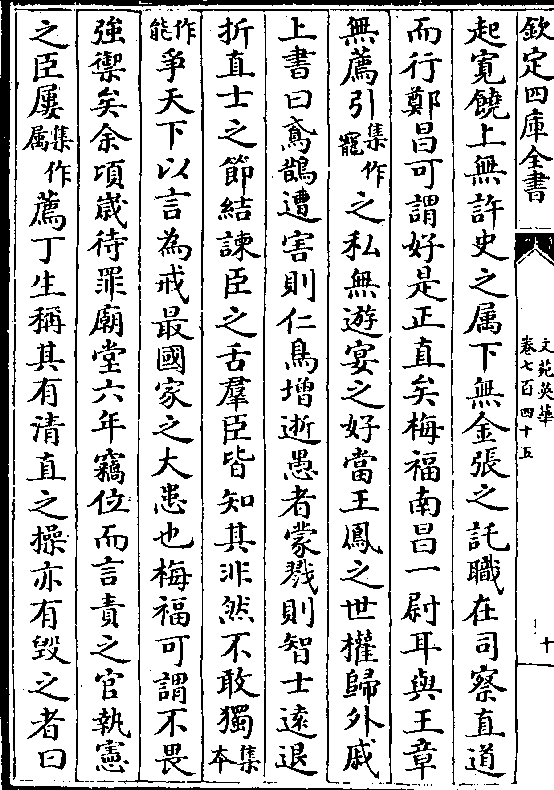 欽定四庫全書
文苑英華
卷七百四十五
十
起寛饒上無許史之属下無金張之託職在司察直道
而行鄭昌可謂好是正直矣梅福南昌一尉耳與王章
無薦引集作寵之私無遊宴之好當王鳳之世權歸外戚
上書曰鳶鵲遭害則仁鳥增逝愚者蒙戮則智士逺退
折直士之節結諫臣之舌羣臣皆知其非然不敢獨集本
作能爭天下以言為戒最國家之大患也梅福可謂不畏
強禦矣余頃歳待罪廟堂六年竊位而言責之官執憲
之臣屢集作属薦丁生稱其有清直之操亦有毀之者曰